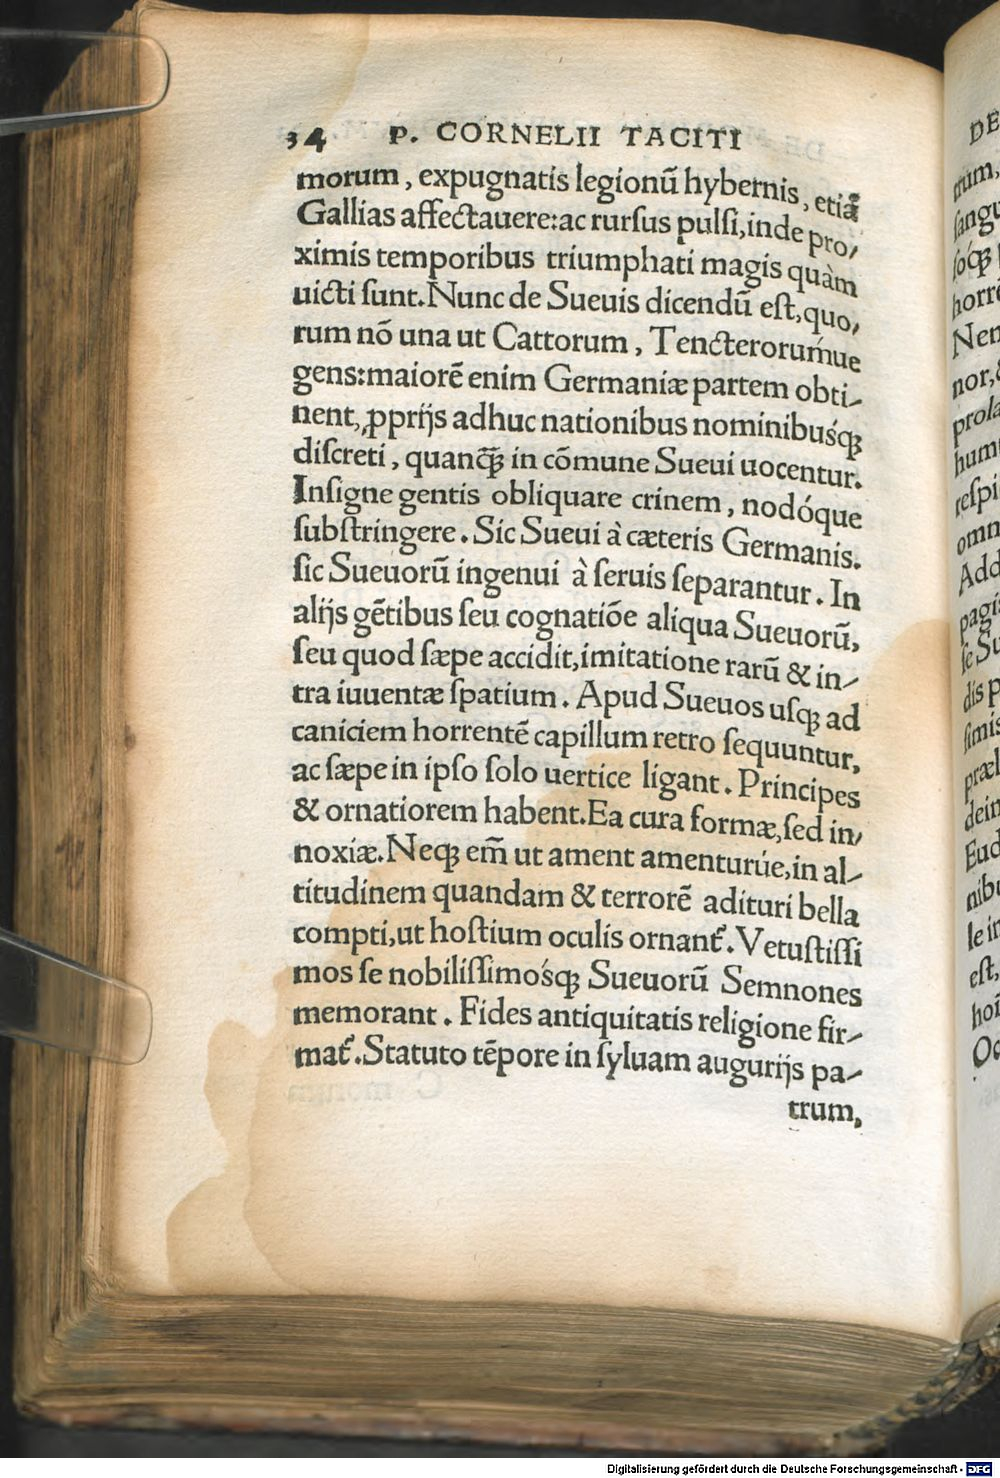 34 P. CORNELII TACITI
morum, expugnatis legionũ hybernis, etiã
Gallias affectauere:ac rursus pulsi,inde pro/
ximis temporibus triumphati magis quàm
uicti sunt.Nunc de Sueuis dicendũ est,quo/
rum nõ una ut Cattorum, Tencteroruḿue
gens:maiorẽ enim Germaniæ partem obti/
nent, ꝓprijs adhuc nationibus nominibusq́ꝫ
discreti, quanq̃ꝫ in cõmune Sueui uocentur.
Insigne gentis obliquare crinem, nodóque
substringere. Sic Sueui à cæteris Germanis.
sic Sueuorũ ingenui à seruis separantur. In
alijs gẽtibus seu cognatiõe aliqua Sueuorũ,
seu quod sæpe accidit,imitatione rarũ & in/
tra iuuentæ spatium. Apud Sueuos usqꝫ ad
caniciem horrentẽ capillum retro sequuntur,
ac sæpe in ipso solo uertice ligant. Principes
& ornatiorem habent.Ea cura formæ,sed in/
noxiæ.Neqꝫ em̃ ut ament amenturúe,in al/
titudinem quandam & terrorẽ adituri bella
compti,ut hostium oculis ornant᷑.Vetustissi
mos se nobilissimosq́ꝫ Sueuorũ Semnones
memorant. Fides antiquitatis religione fir/
mat᷑.Statuto tẽpore in syluam augurijs pa/
trum,
DE
trum,
sangu
horrẽ
Nem
nor,&
prola
hum
respi
omn
Add
pagi
se Su
dis p
simis
præl
dein
Eud
nibu
le in
est,
Digitalisierung gefördert durch die Deutsche Forschungsgemeinschaft - DFG